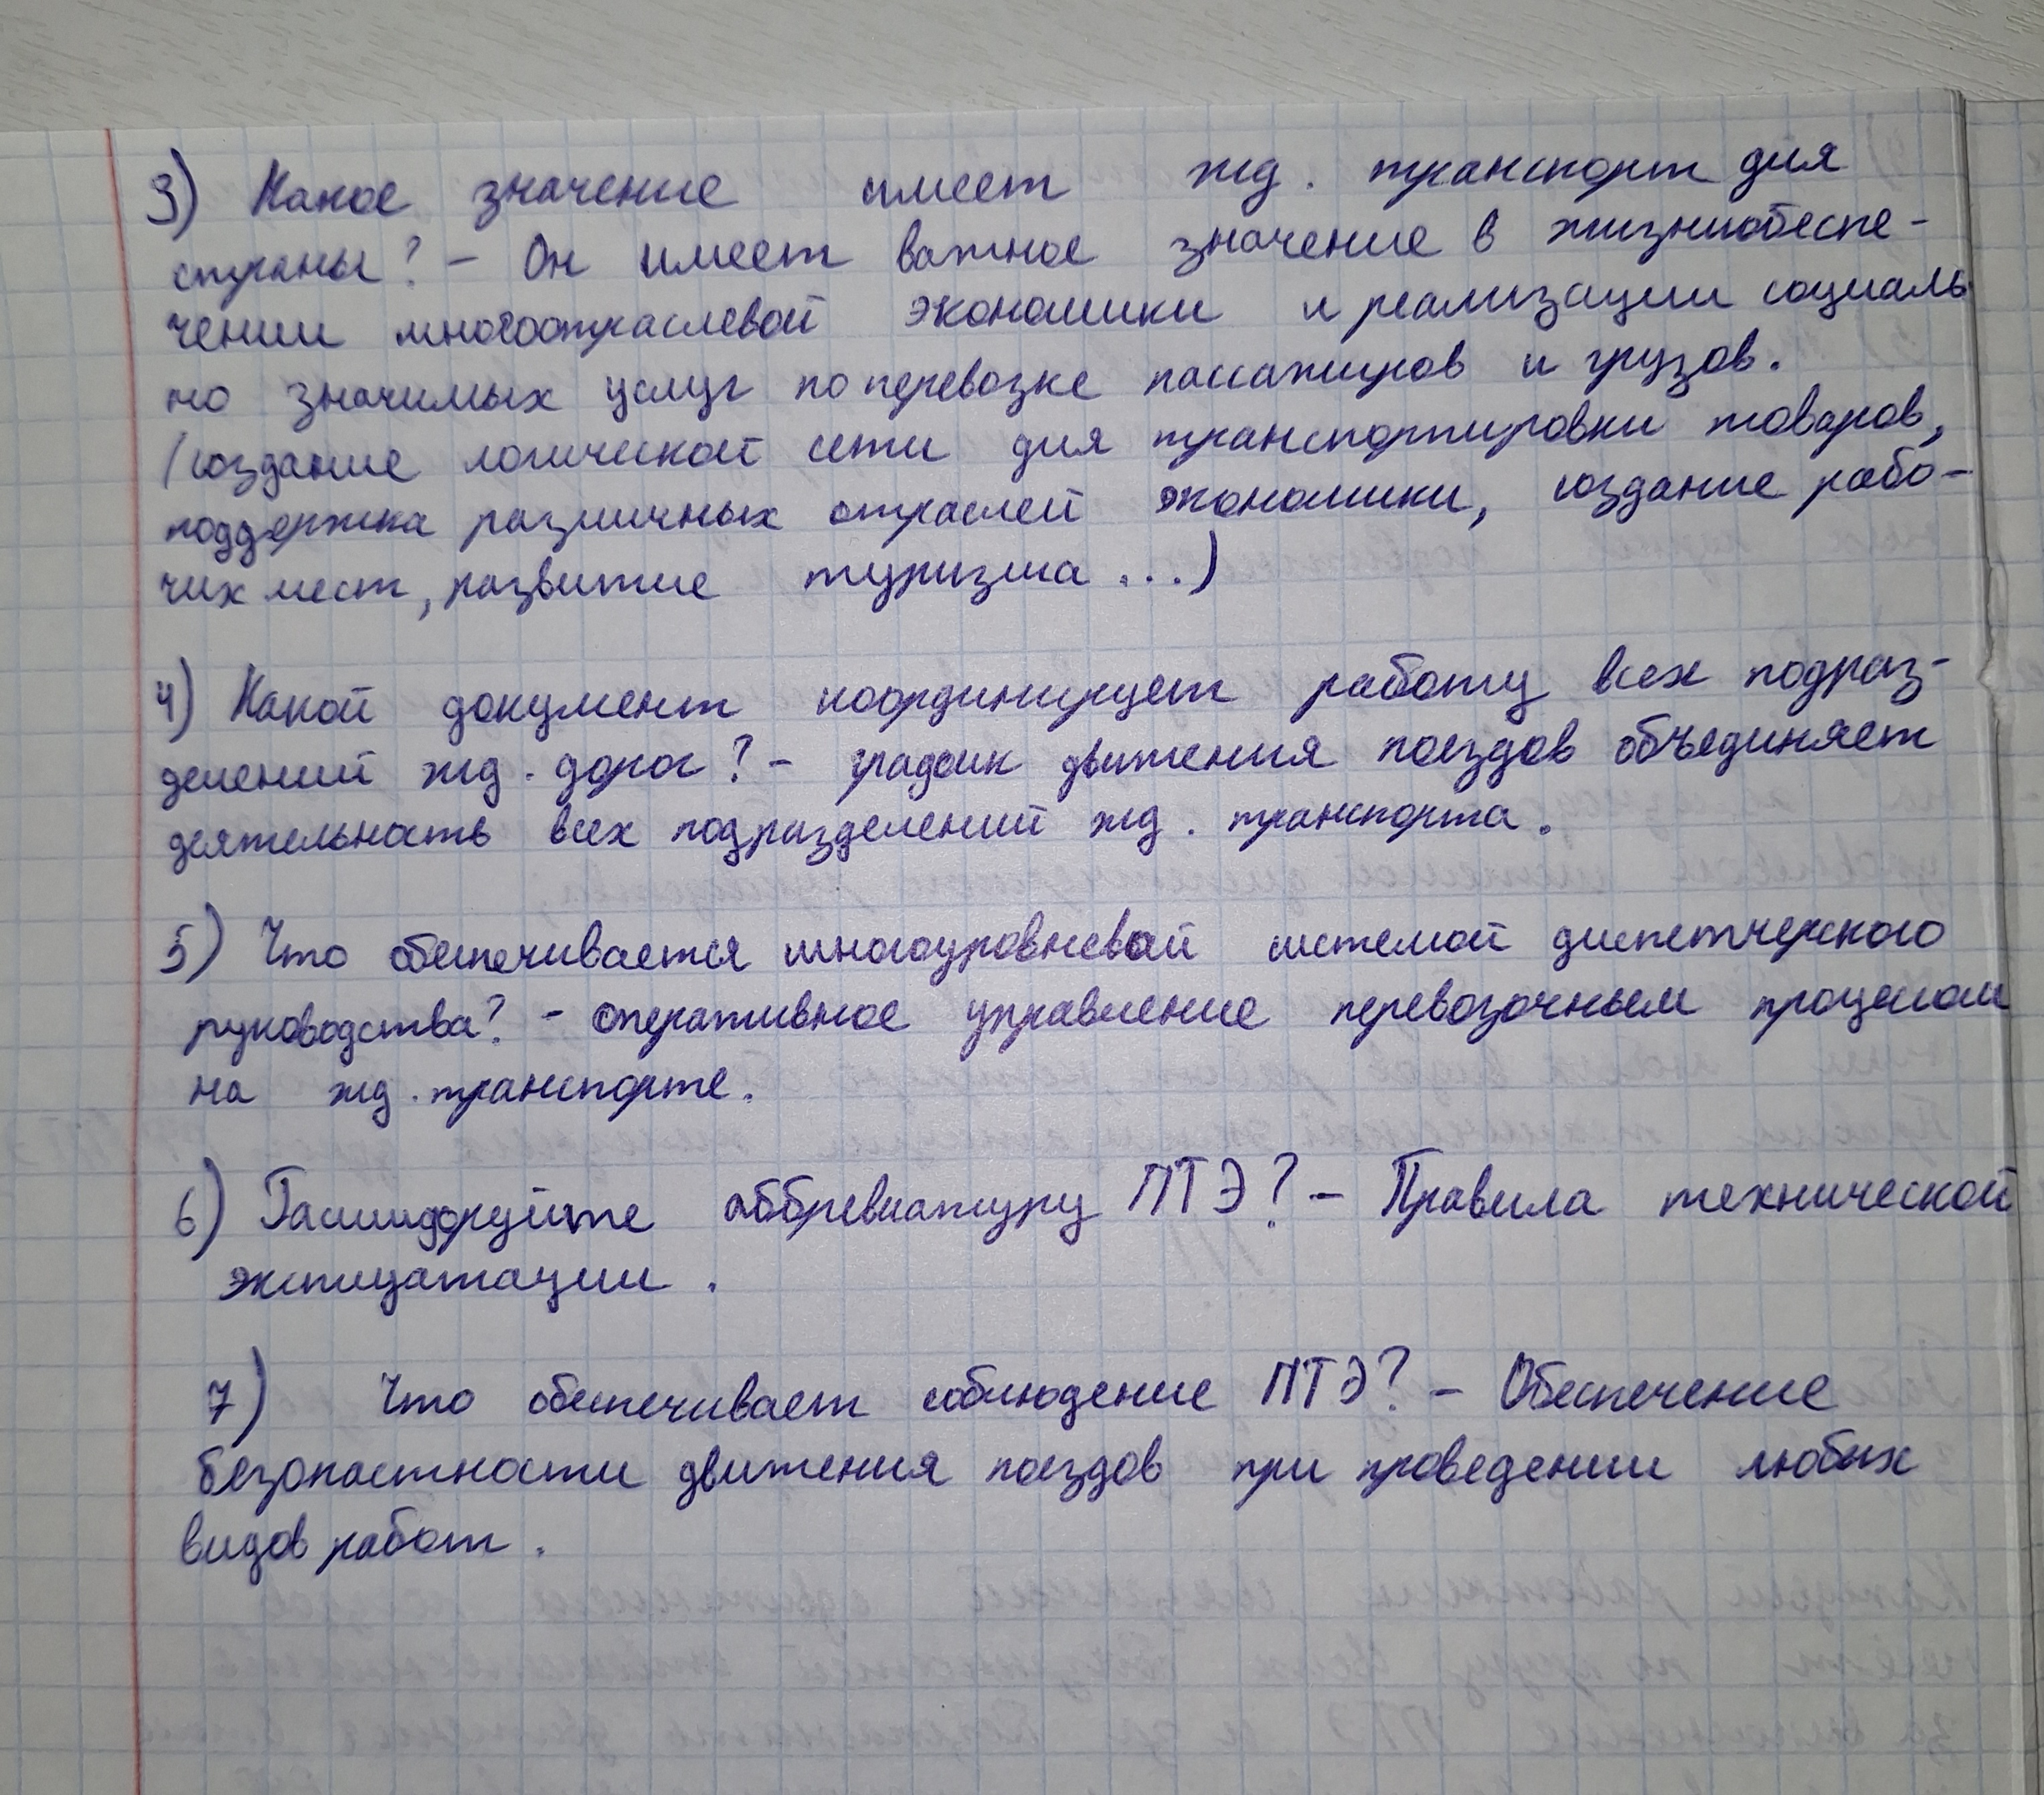 3) Какое значение имеет жд. транспорт для
страны? - Он имеет важное значение в жизниобеспе-
чении многоотраслевой экономики и реализации социаль
но значимых услуг по перевозке пассажиров и грузов.
(создание логической сети для транспортировки товаров,
поддержка различных отраслей экономики, создание рабо-
чих мест, развитие туризма ...)
4) Какой документ координирует работу всех подраз-
делений жд. дорог? - график движения поездов объединяет
деятельность всех подразделений жд. транспорта.
5) Что обеспечивается многоуровневой системой диспетчерского
руководства? - оперативное управление перевозочным процессом
на жд. транспорте.
6) Расшифруйте аббревиатуру ПТЭ? - Правила технической
эксплуатации.
7) Что обеспечивает соблюдение ПТЭ? - Обеспечение
безопастности движения поездов при проведении любых
видов работ.